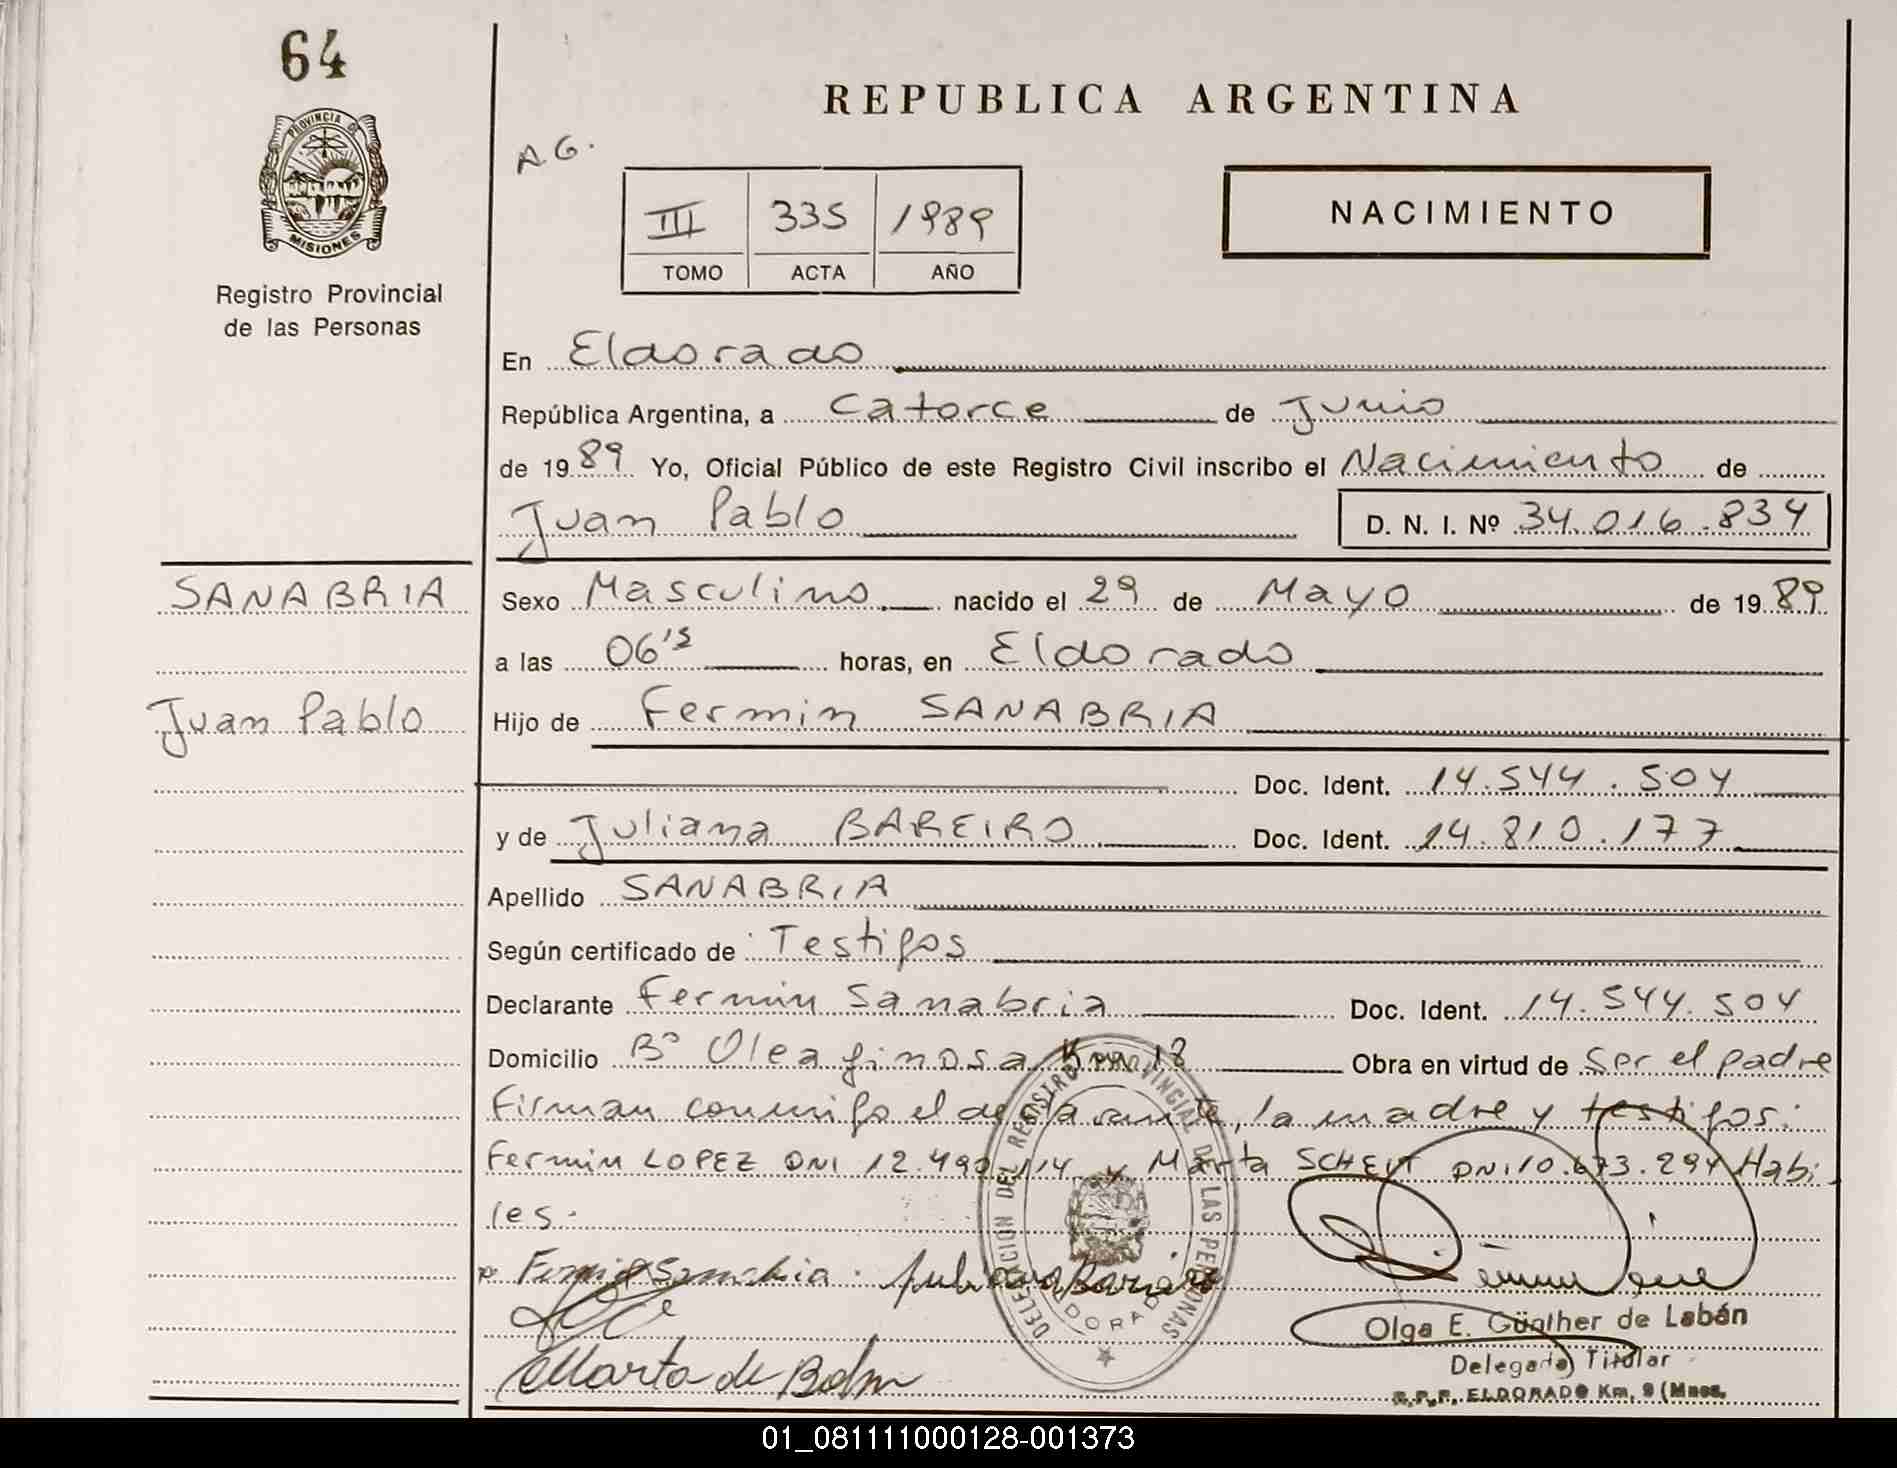 64
PROVINCIA DE
MISIONES
Registro Provincial
de las Personas
SANABRIA
Juan Pablo
REPUBLICA ARGENTINA
A.G.
III 335 1989
TOMO ACTA AÑO
NACIMIENTO
En Eldorado
República Argentina, a Catorce de Junio
de 1989 Yo, Oficial Público de este Registro Civil inscribo el Nacimiento de
Juan Pablo D. N. I. Nº 34.016.834
Sexo Masculino nacido el 29 de Mayo de 1989
a las 06'15 horas, en Eldorado
Hijo de Fermin SANABRIA
Doc. Ident. 14.544.504
y de Juliana BAREIRO Doc. Ident. 14.810.177
Apellido SANABRIA
Según certificado de Testigos
Declarante Fermin Sanabria Doc. Ident. 14.544.504
Domicilio Bº Oleaginosa Km 18 Obra en virtud de Ser el padre
Firman conmigo el declarante, la madre y testigos:
Fermin LOPEZ DNI 12.490.114 y Marta DNI 10.673.294 Habi
les.
Fermin Sanabria
Marta de
DELEGACION DEL REGISTRO PROVINCIAL DE LAS PERSONAS
ELDORADO
Olga E. Günther de Labán
Delegada Titular
R.P.P. ELDORADO Km. 9 (Mnes.
01_081111000128-001373